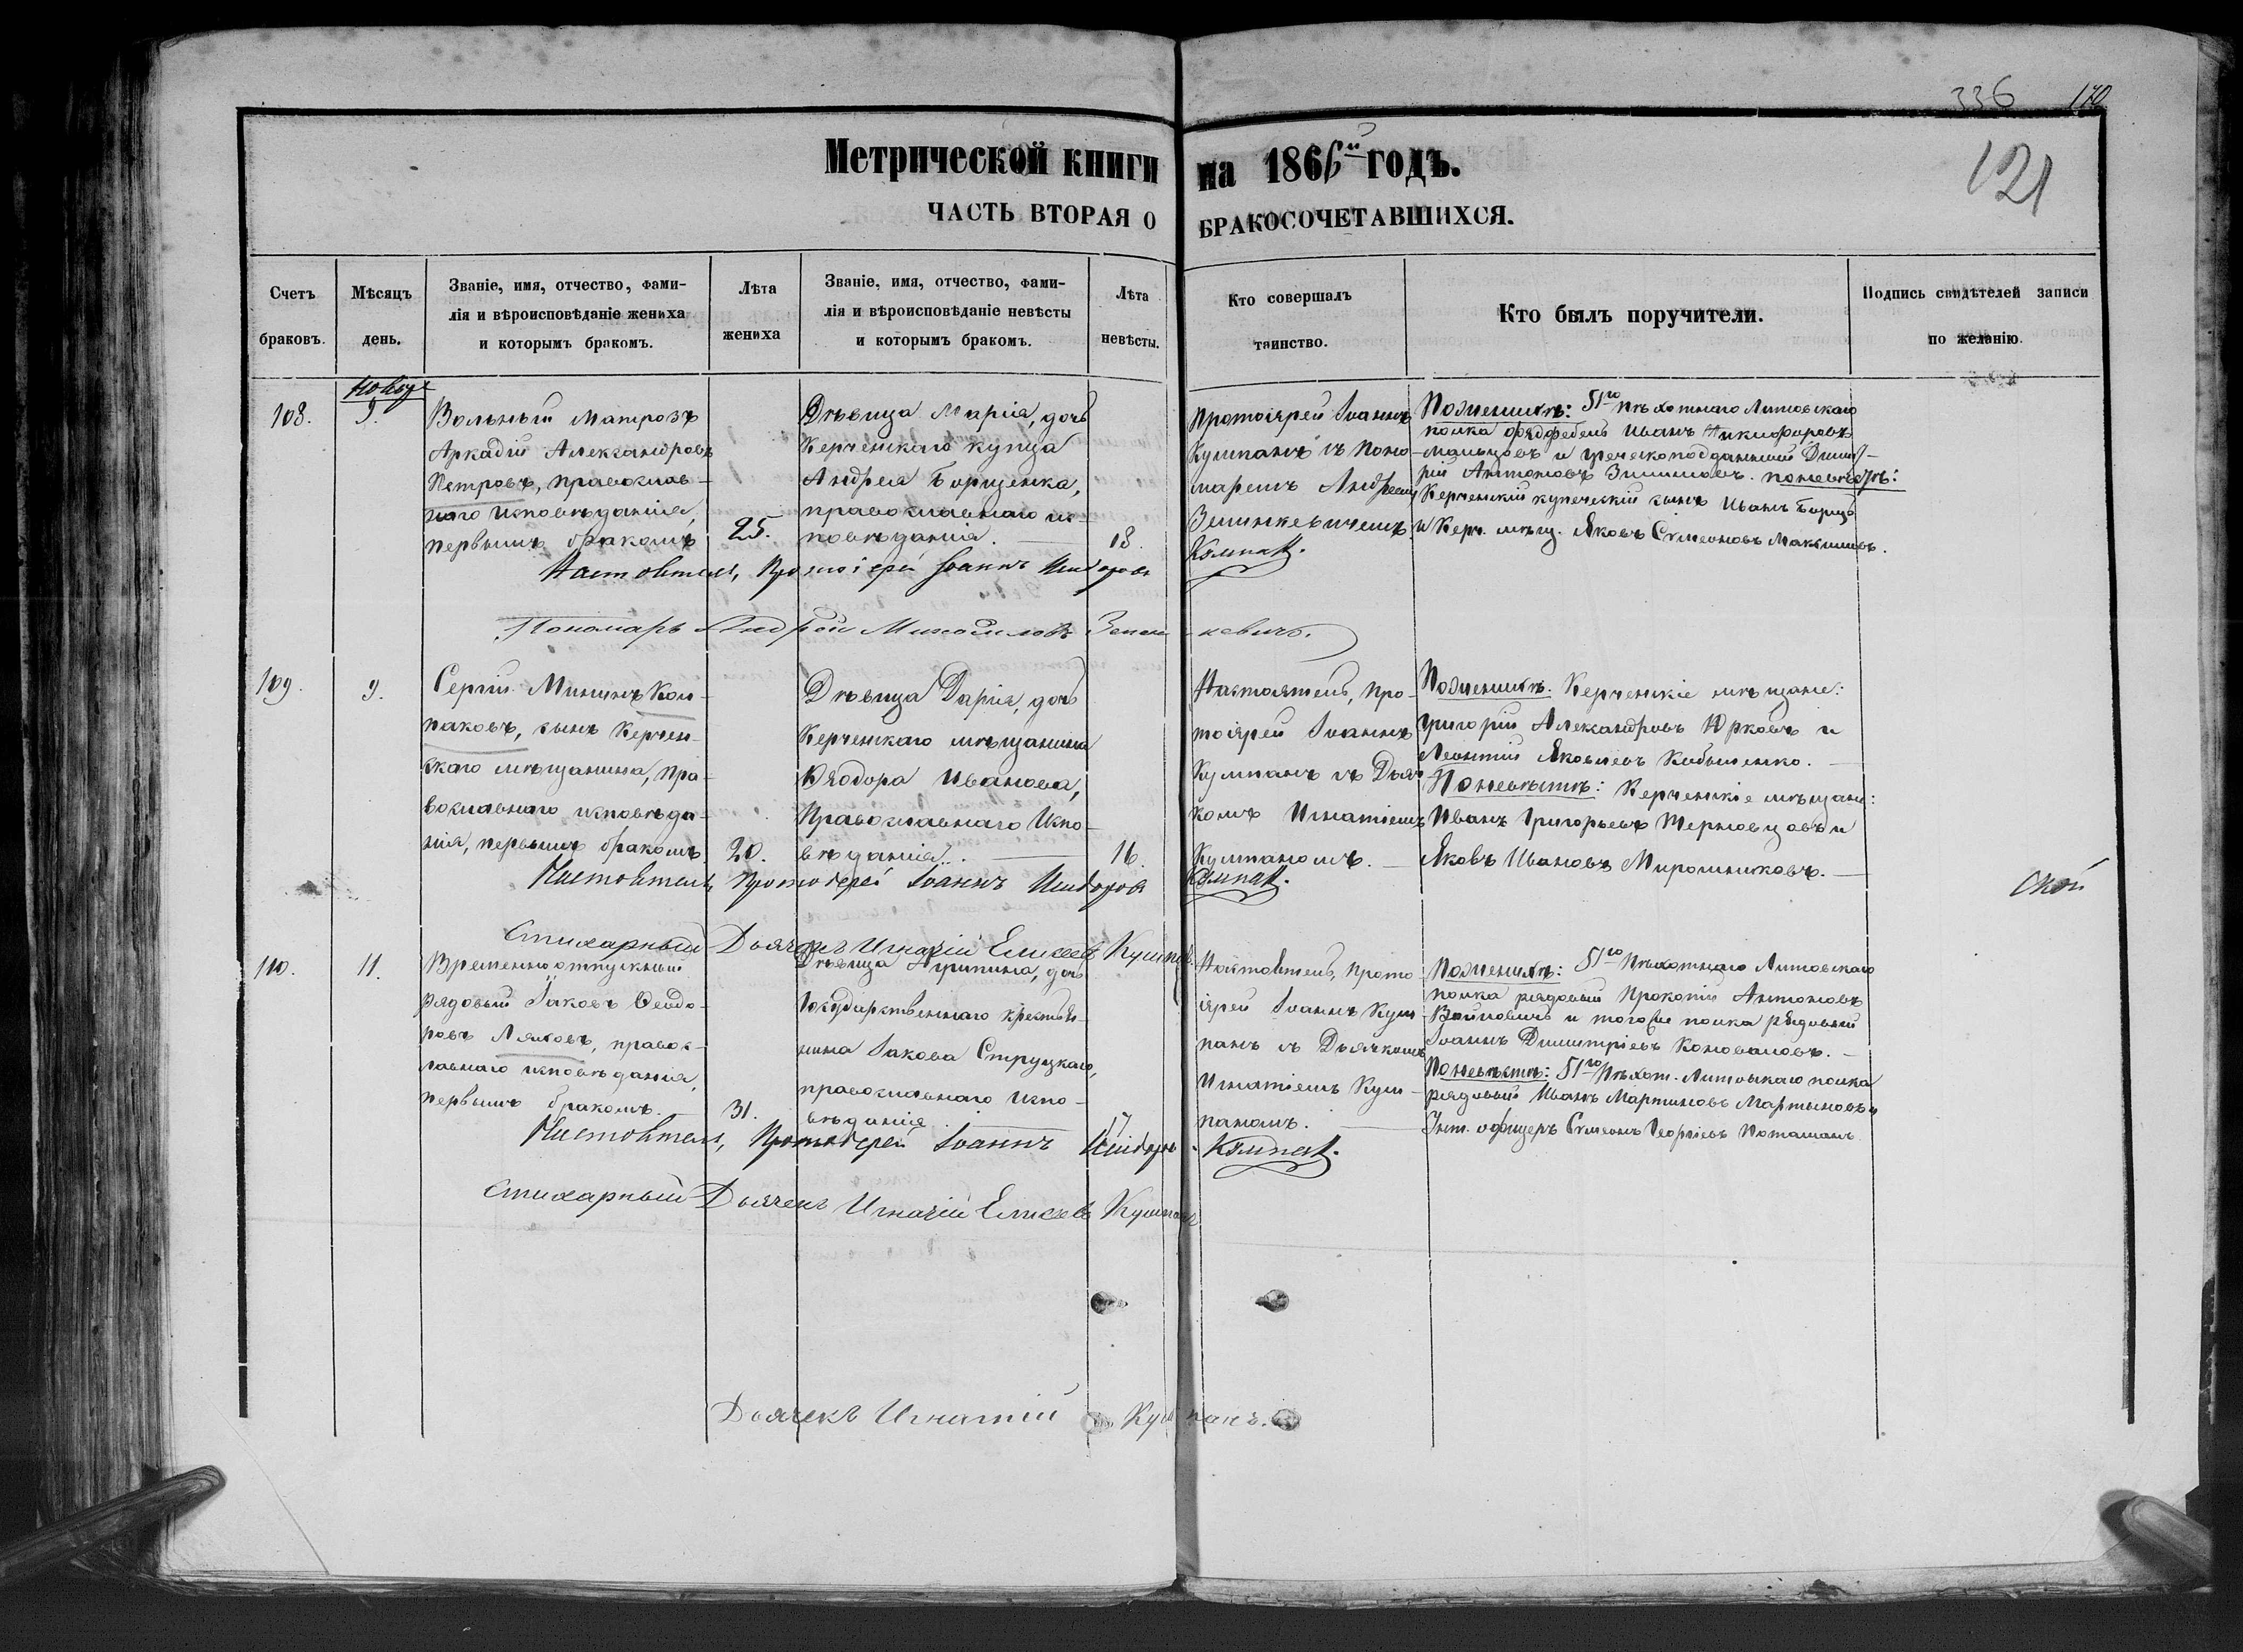 336 170
121
Метрической книги на 1866й годъ.
ЧАСТЬ ВТОРАЯ О БРАКОСОЧЕТАВШИХСЯ.
Счетъ браковъ.
Мѣсяцъ день.
Званіе, имя, отчество, фами-
лія и вѣроисповѣданіе жениха
и которымъ бракомъ.
Лѣта жениха
Званіе, имя, отчество, фами-
лія и вѣроисповѣданіе невѣсты
и которымъ бракомъ.
Лѣта невѣсты.
Кто совершалъ
таинство.
Кто былъ поручители.
Подпись свидѣтелей записи
по желанію.
108.
9.
Вольный матрозъ
Аркадій Александровъ
Петровъ, православ-
наго исповѣданія,
первымъ бракомъ
25.
Дѣвица Марія, дочь
Керченскаго купца
Андрея Борщенка,
православнаго ис-
повѣданія.
18.
Протоіерей Іоаннъ
Кумпанъ съ Поно-
маремъ Андреем
Зинкевичемъ
По женихѣ: 51го пѣхотнаго Литовскаго
полка фелдфебель Иванъ Никифоровъ
Мальцовъ и греческоподданный Димит-
рій Антоновъ
По невѣстѣ:
Керченскій купеческій сынъ Иванъ Борщо
и Керч. мѣщ. Яковъ Сѵмеоновъ Максимовъ.
Настоятель, Протоіерей Іоаннъ Исидоровъ Кумпан.
Пономарь Андрей Михайловъ Зенкевичъ.
109.
9.
Сергій Мининъ Кол-
паковъ, сынъ Керчен-
скаго мѣщанина, пра-
вославнаго исповѣда-
нія, первымъ бракомъ
20.
Дѣвица Дарія, дочь
Керченскаго мѣщанина
Ѳеодора Иванова,
Православнаго Испо-
вѣданія.
16.
Настоятель, про-
тоіерей Іоаннъ
Кумпанъ съ Дьяч-
комъ Игнатіемъ
Кумпаномъ.
По женихѣ. Керченскіе мѣщане:
Григорій Александровъ Юрковъ и
Леонтій Яковлевъ Кобыленко.
По невѣстѣ: Керченскіе мѣщане:
Иванъ Григорьевъ Терновцовъ и
Яковъ Ивановъ Мирошниковъ.
Настоятель, Протоіерей Іоаннъ Исидоровъ Кумпан.
Стихарный Дьячекъ Игнатій Елисеевъ Кумпанъ
110.
11.
Временноотпускный
рядовый Іаковъ Ѳеодо-
ровъ Ляховъ, правос-
лавнаго исповѣданія,
первымъ бракомъ.
31.
Дѣвица Агрипина, дочь
Государственнаго крестья-
нина Іакова Струцкаго,
православнаго Испо-
вѣданія
17
Настоятель, прото
іерей Іоаннъ Кум-
панъ съ Дьячкомъ
Игнатіемъ Кум-
паномъ.
По женихѣ: 51го Пѣхотнаго Литовскаго
полка рядовый Прокопій Антоновъ
Войновичъ и того же полка рядовый
Іоаннъ Димитріевъ Коноваловъ.
По невѣстѣ: 51го Пѣхот. Литовскаго полка
рядовый Иванъ Мартиновъ Мартыновъ и
Унт. офицеръ Сѵмеонъ Георгіевъ Поташанъ
Настоятель, Протоіерей Іоаннъ Исидоровъ Кумпан.
Стихарный Дьячекъ Игнатій Елисеевъ Кумпанъ
Дьячекъ Игнатій Кумпанъ.
ской